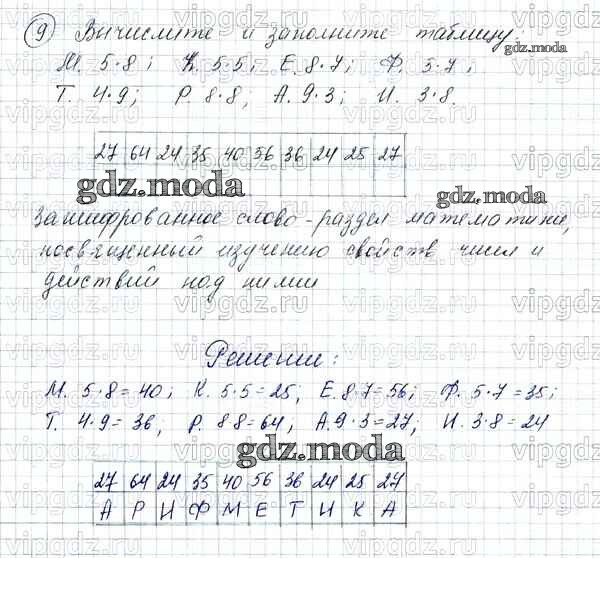 9 Вычислите и заполните таблицу.
gdz.moda
М. 5·8; К. 5·5; Е. 8·7; Ф. 5·7;
Т. 4·9; Р. 8·8; А. 9·3; И. 3·8.
27 64 24 35 40 56 36 24 25 27
gdz.moda gdz.moda
Зашифрованное слово - раздел математики,
посвященный изучению свойств чисел и
действий над ними
Решение:
М. 5·8=40; К. 5·5=25; Е. 8·7=56; Ф. 5·7=35;
Т. 4·9=36, Р. 8·8=64, А. 9·3=27, И. 3·8=24
gdz.moda
27 64 24 35 40 56 36 24 25 27
А Р И Ф М Е Т И К А
vipgdz.ru